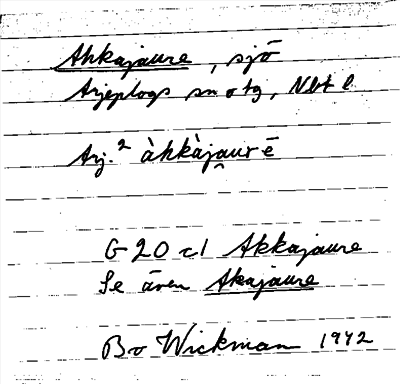 Ahkajaure, sjö
Arjeplogs sn o tg, Nbt l
Arj.² àhkàjau̯rē
G 20 cl Akkajaure
Se även Akajaure
Bo Wickman 1942